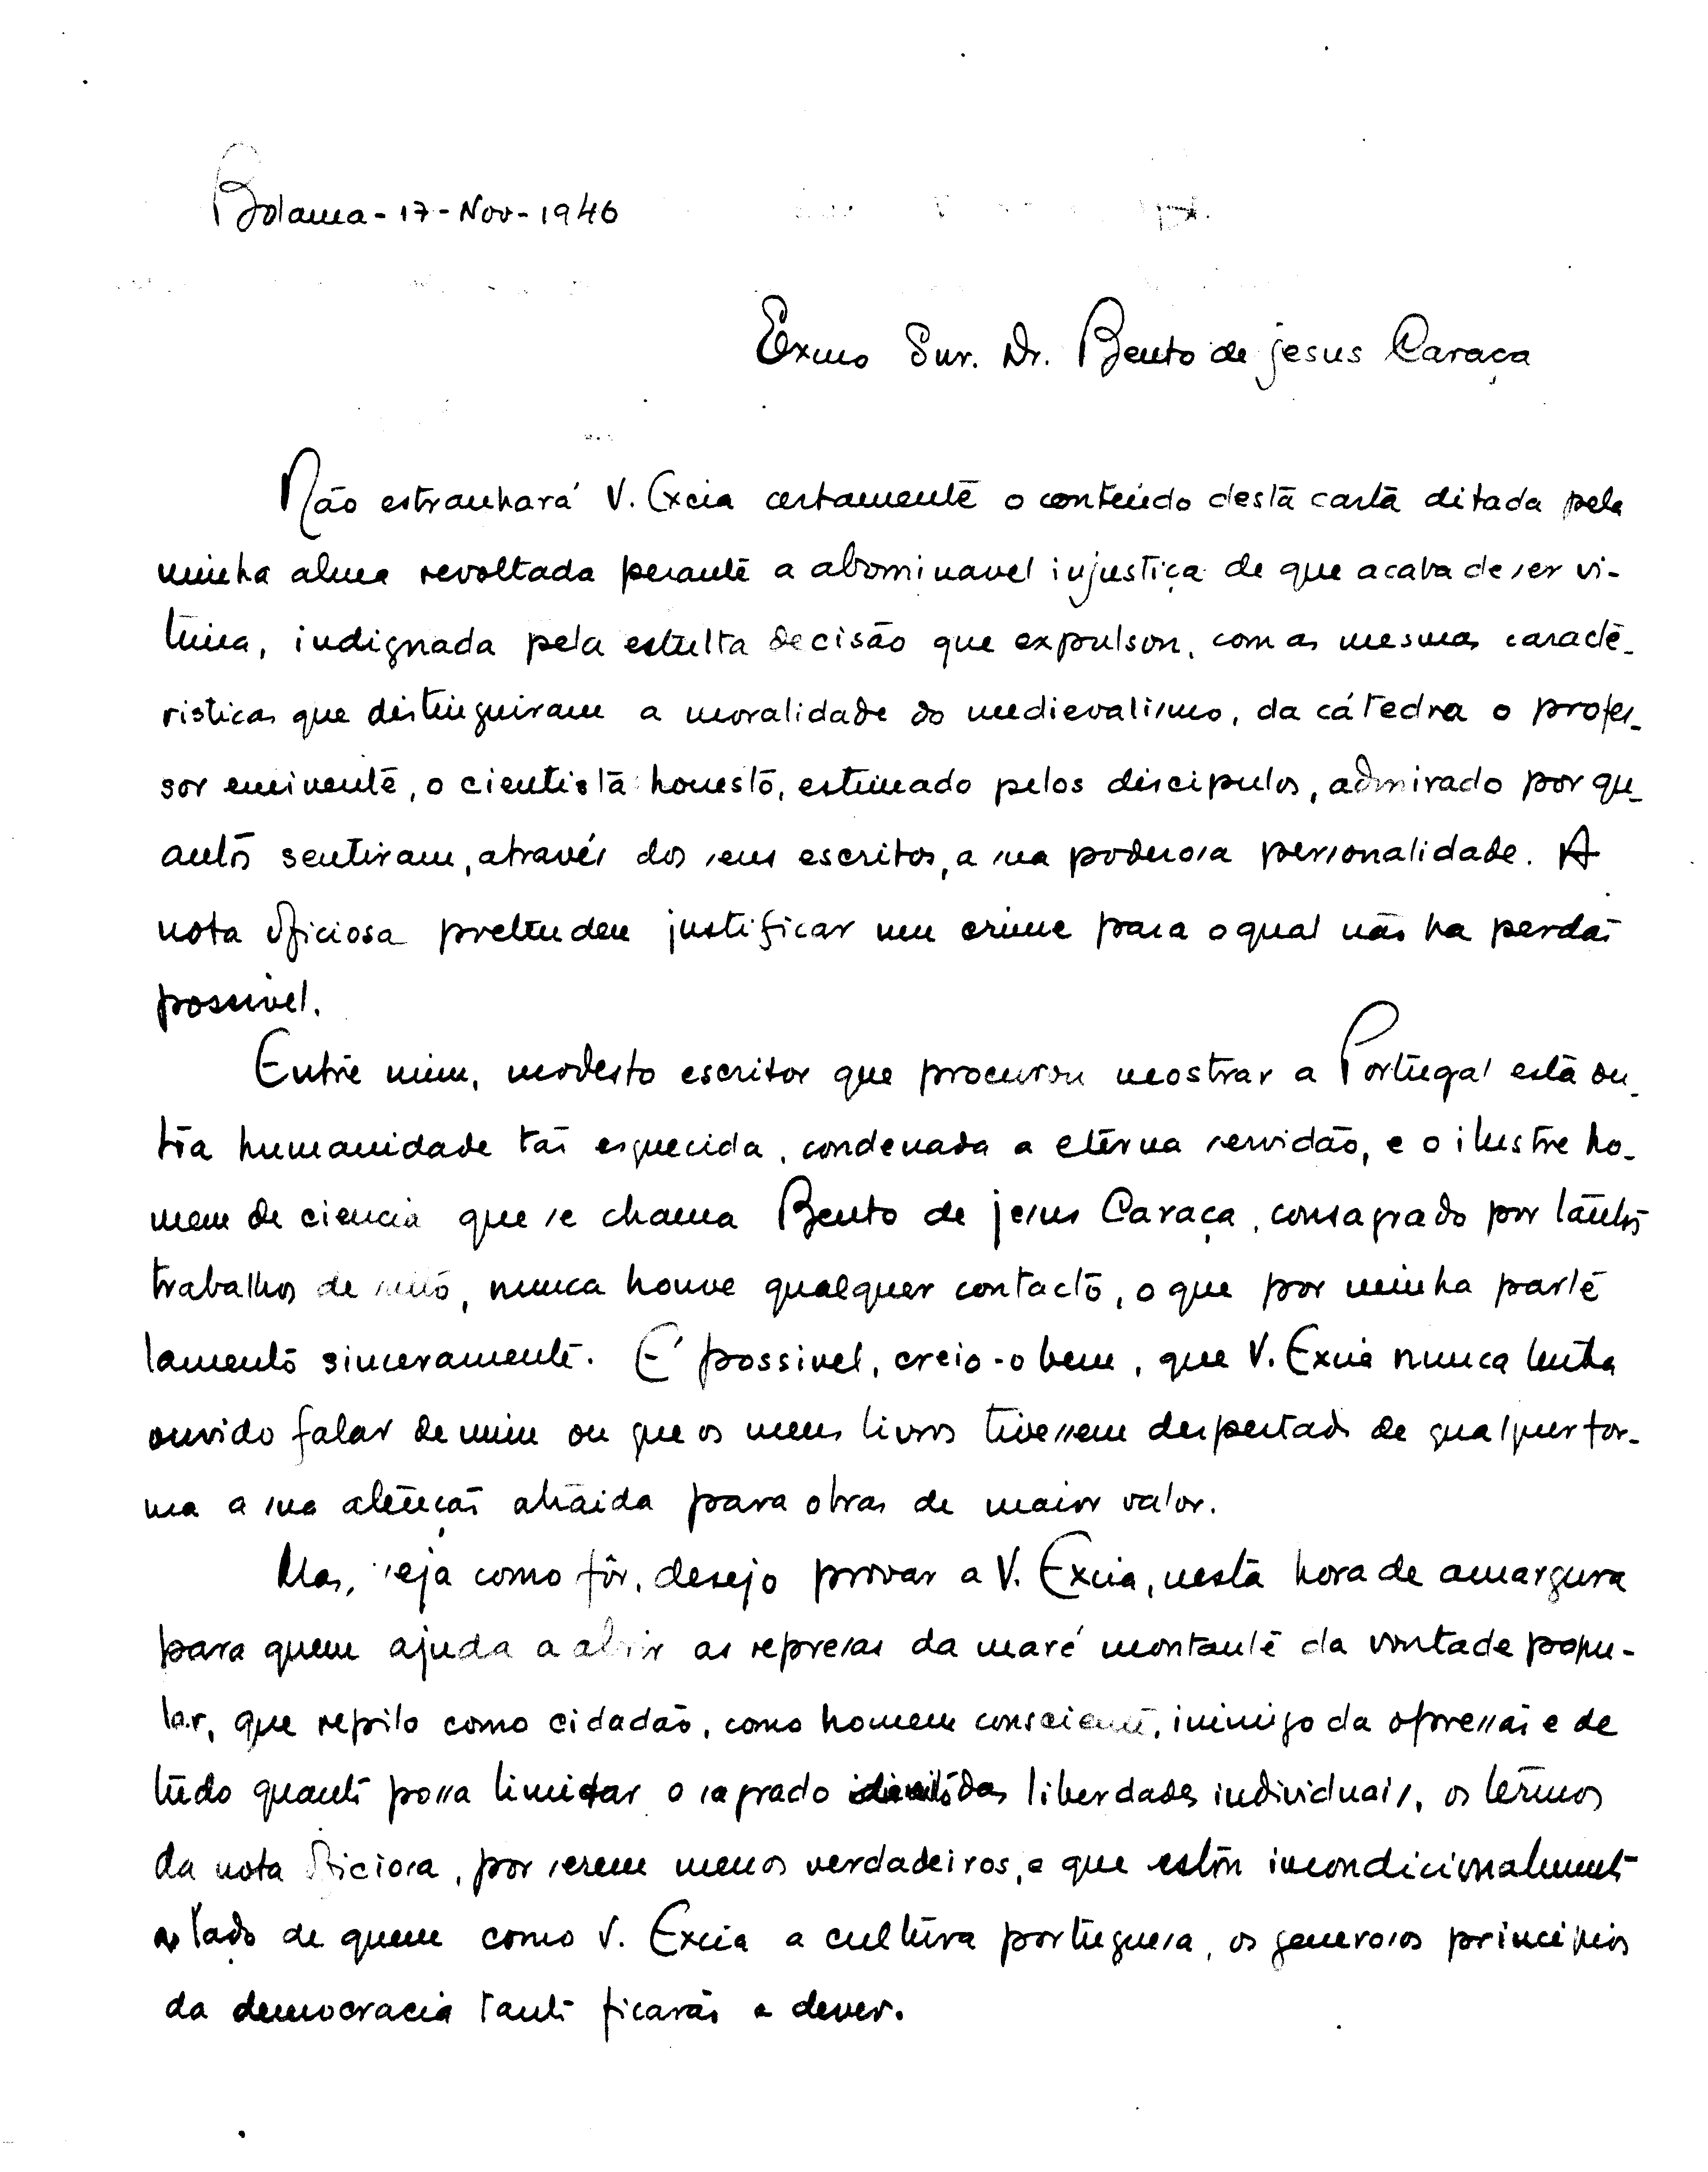 Bolama - 17 - Nov - 1946
Exmo Snr. Dr. Bento de jesus Caraça
Não estranhará V. Excia certamente o conteúdo desta carta ditada pela
minha alma revoltada perante a abominavel injustiça de que acaba de ser vi-
tima, indignada pela estulta decisão que expulsou, com as mesmas caracte-
risticas que distinguiram a moralidade do medievalismo, da cátedra o profes-
sor eminente, o cientista honesto, estimado pelos discipulos, admirado por qu-
antos sentiram, através dos seus escritos, a sua poderosa personalidade. A
nota oficiosa pretendeu justificar um crime para o qual não ha perdão
possivel.
Entre mim, modesto escritor que procurou mostrar a Portugal esta ou-
tra humanidade tão esquecida, condenada a eterna servidão, e o ilustre ho-
mem de ciencia que se chama Bento de jesus Caraça, consagrado por tantos
trabalhos de, nunca houve qualquer contacto, o que por minha parte
lamento sinceramente. É possivel, creio-o bem, que V. Excia nunca tenha
ouvido falar de mim ou que os meus livros tivessem despertado de qualquer for-
ma a sua atenção atraida para obras de maior valor.
Mas, seja como fôr, desejo provar a V. Excia, nesta hora de amargura
para quem ajuda a abrir as represas da maré montante da vontade popu-
lar, que repilo como cidadão, como homem consciente, inimigo da opressão e de
tudo quanto possa limitar o sagrado direito das liberdades individuais, os termos
da nota oficiosa, por serem menos verdadeiros, e que estou incondicionalmente
ao lado de quem como V. Excia a cultura portuguesa, os generosos principios
da democracia tanto ficarão a dever.